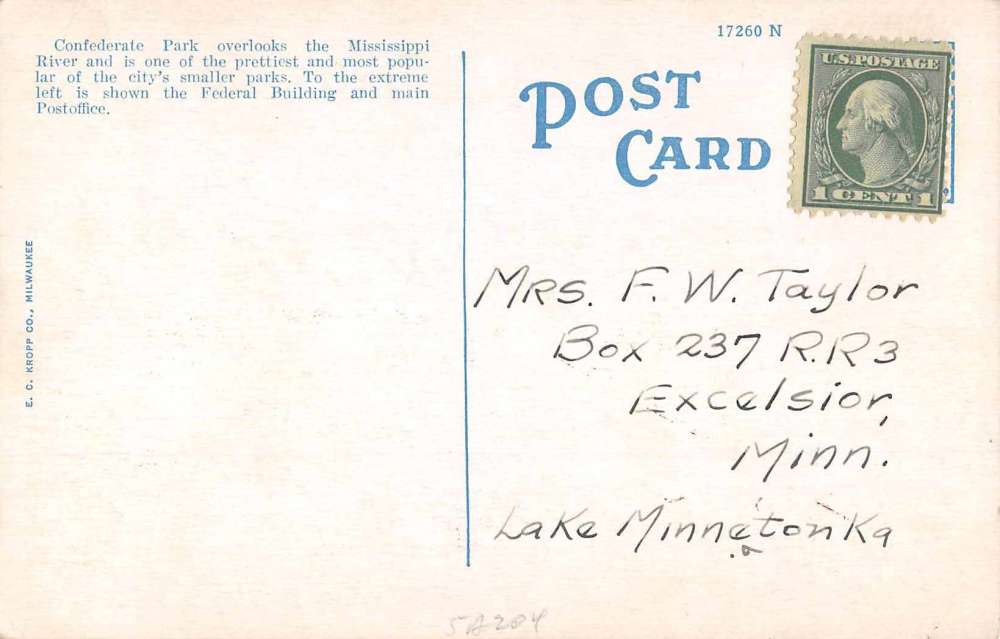 Confederate Park overlooks the Mississippi
River and is one of the prettiest and most popu-
lar of the city's smaller parks. To the extreme
left is shown the Federal Building and main
Postoffice.
E. C. KROPP CO., MILWAUKEE
17260 N
POST
CARD
U.S. POSTAGE
1 CENT 1
Mrs. F. W. Taylor
Box 237 R.R3
Excelsior,
Minn.
Lake Minnetonka
a
5A284